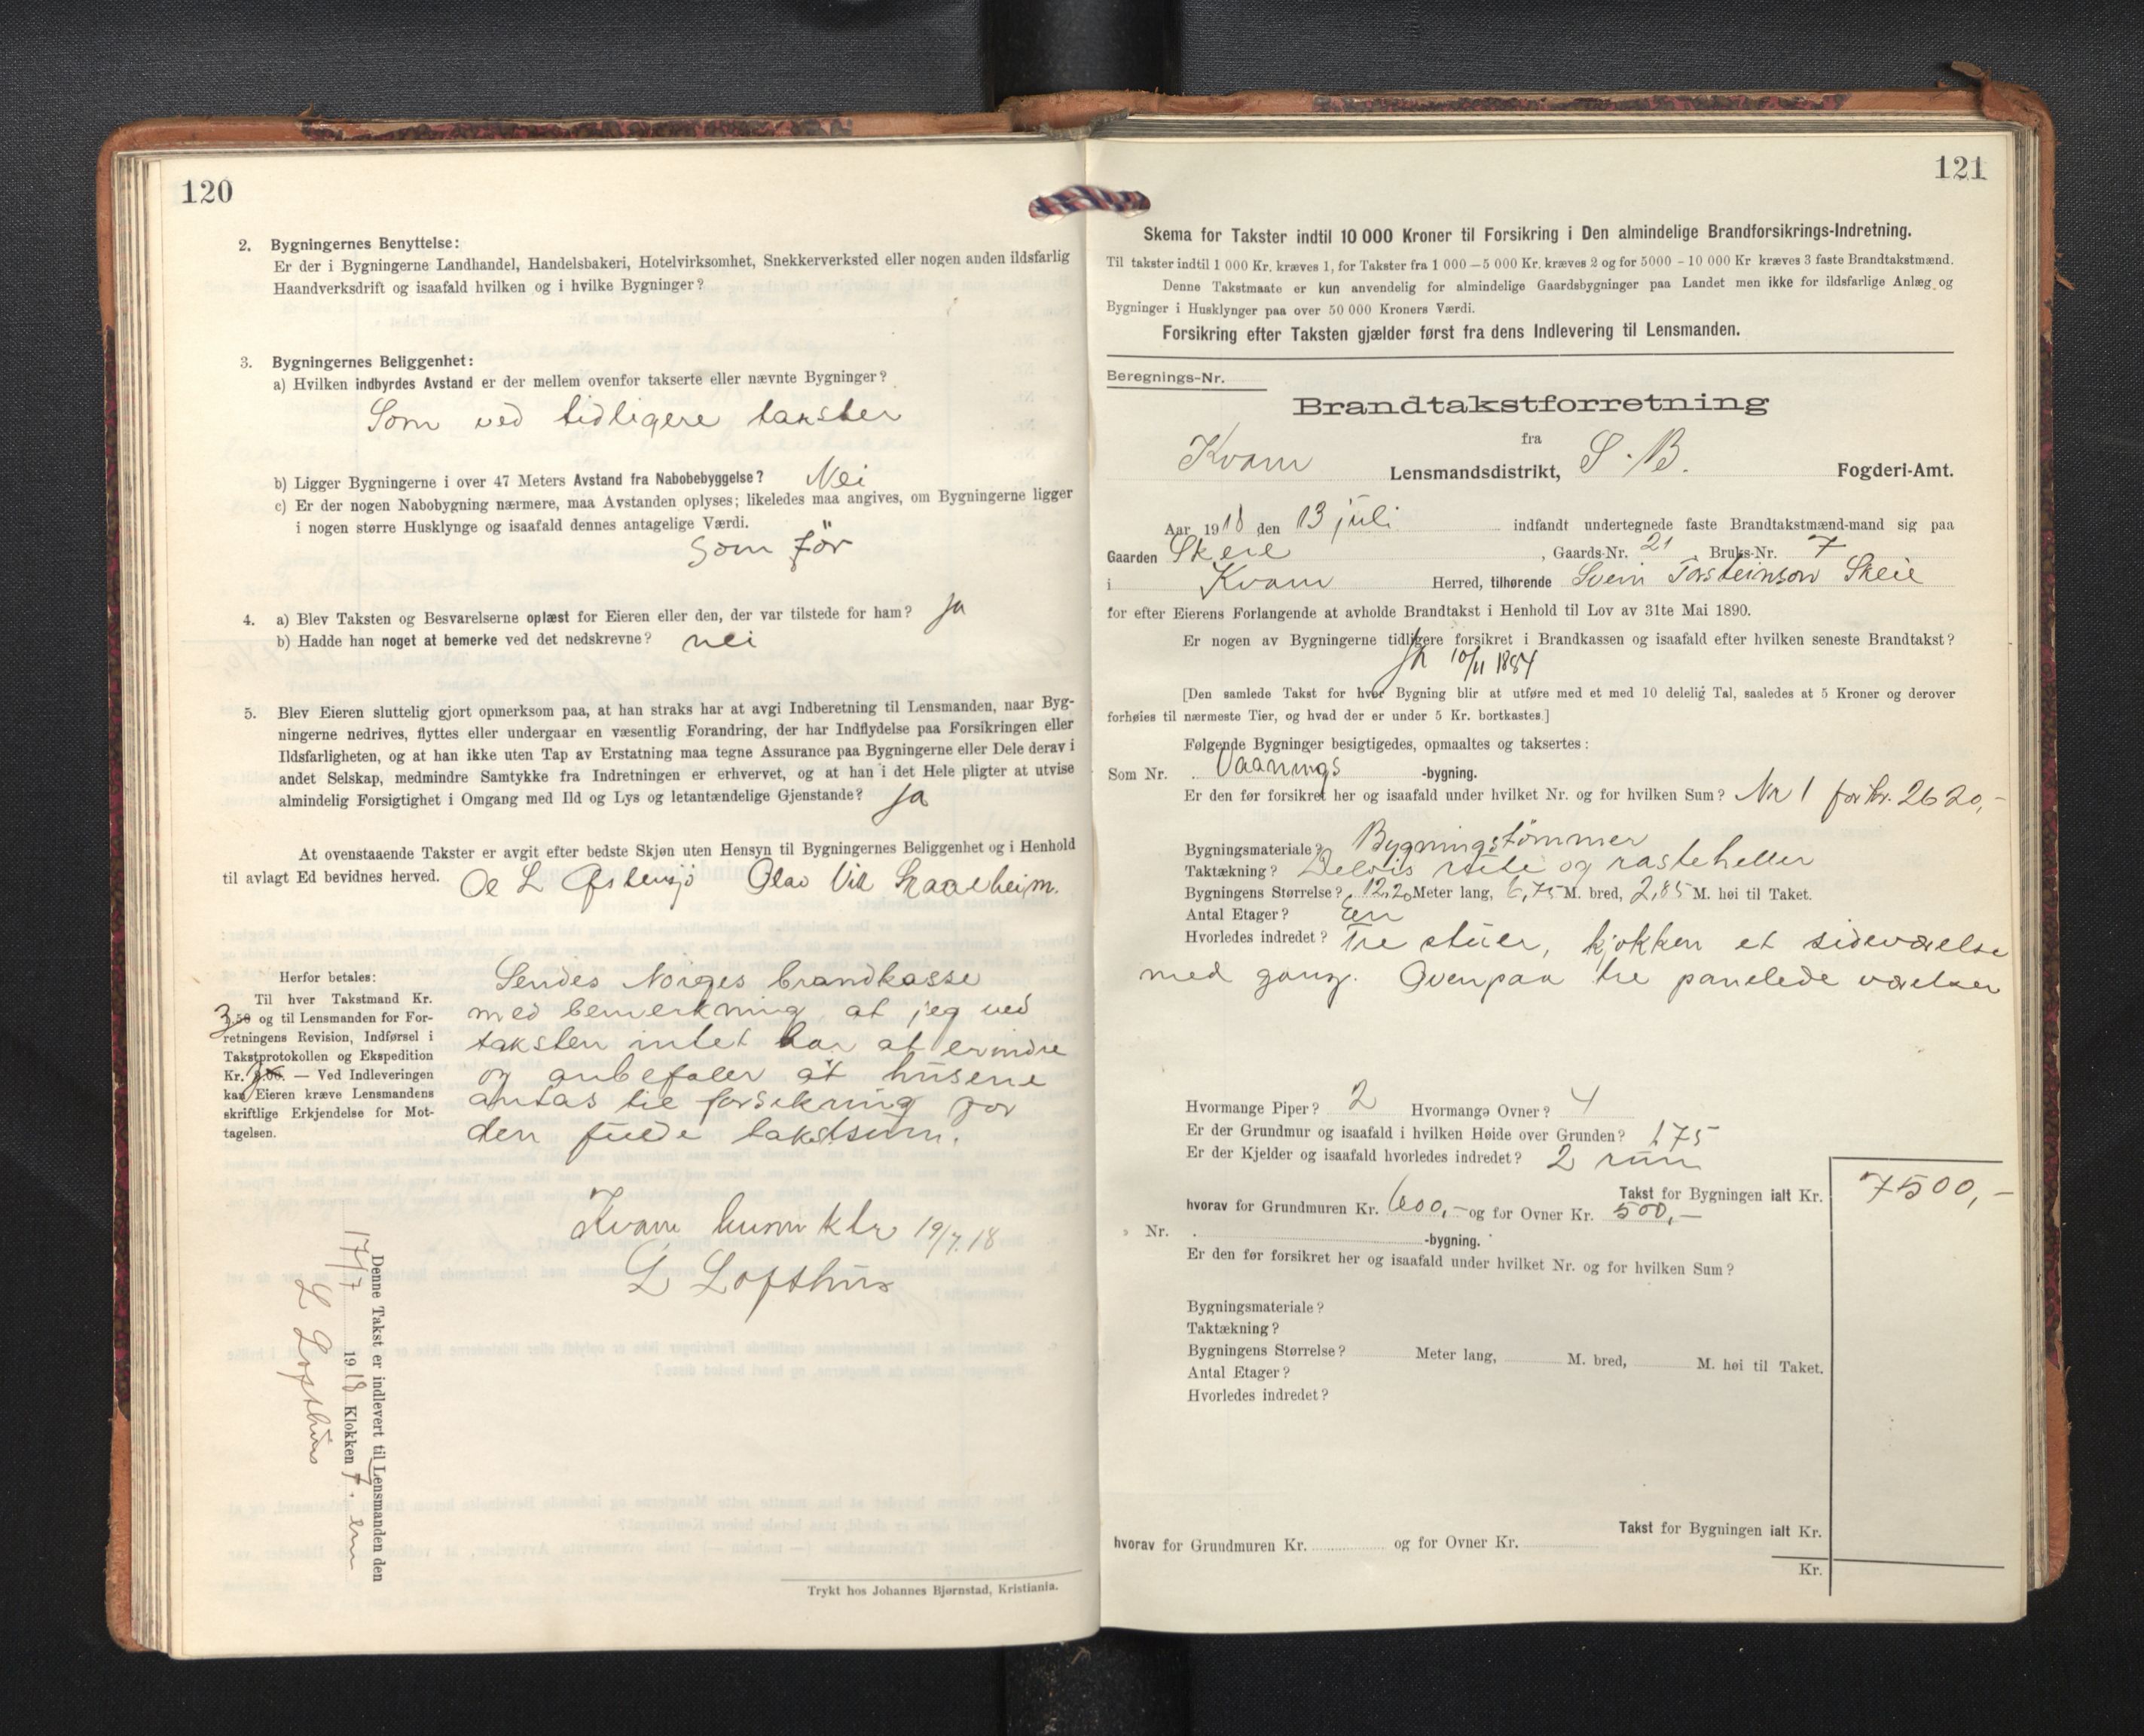 120
2. Bygningernes Benyttelse:
Er der i Bygningerne Landhandel, Handelsbakeri, Hotelvirksomhet, Snekkerverksted eller nogen anden ildsfarlig
Haandverksdrift og isaafald hvilken og i hvilke Bygninger?
3. Bygningernes Beliggenhet:
a) Hvilken indbyrdes Avstand er der mellem ovenfor takserte eller nævnte Bygninger?
Som ved tidligere takster
b) Ligger Bygningerne i over 47 Meters Avstand fra Nabobebyggelse? Nei
c) Er der nogen Nabobygning nærmere, maa Avstanden oplyses; likeledes maa angives, om Bygningerne ligger
i nogen større Husklynge og isaafald dennes antagelige Værdi.
Som før
4. a) Blev Taksten og Besvarelserne oplæst for Eieren eller den, der var tilstede for ham? Ja
b) Hadde han noget at bemerke ved det nedskrevne? nei
5. Blev Eieren sluttelig gjort opmerksom paa, at han straks har at avgi Indberetning til Lensmanden, naar Byg-
ningerne nedrives, flyttes eller undergaar en væsentlig Forandring, der har Indflydelse paa Forsikringen eller
Ildsfarligheten, og at han ikke uten Tap av Erstatning maa tegne Assurance paa Bygningerne eller Dele derav i
andet Selskap, medmindre Samtykke fra Indretningen er erhvervet, og at han i det Hele pligter at utvise
almindelig Forsigtighet i Omgang med Ild og Lys og letantændelige Gjenstande? Ja
At ovenstaaende Takster er avgit efter bedste Skjøn uten Hensyn til Bygningernes Beliggenhet og i Henhold
til avlagt Ed bevidnes herved. Ol L Østensjø Olav Vik
Herfor betales:
Til hver Takstmand Kr.
3,50 og til Lensmanden for For-
retningens Revision, Indførsel i
Takstprotokollen og Ekspedition
Kr. 3 — Ved Indleveringen
kan Eieren kræve Lensmandens
skriftlige Erkjendelse for Mot-
tagelsen.
Sendes Norges brandkasse
med bemerkning at jeg ved
taksten intet har at erindre
og anbefaler at husene
antas til forsikring for
den fulde takstsum.
Kvam lensm ktr 19/7.18
L Lofthus
Denne Takst er indlevert til Lensmanden den
17/7 1918 Klokken 7. em
L Lofthus
Trykt hos Johannes Bjørnstad, Kristiania.
121
Skema for Takster indtil 10 000 Kroner til Forsikring i Den almindelige Brandforsikrings-Indretning.
Til takster indtil 1 000 Kr. kræves 1, for Takster fra 1 000 – 5 000 Kr. kræves 2 og for 5000 – 10 000 Kr kræves 3 faste Brandtakstmænd.
Denne Takstmaate er kun anvendelig for almindelige Gaardsbygninger paa Landet men ikke for ildsfarlige Anlæg og
Bygninger i Husklynger paa over 50 000 Kroners Værdi.
Forsikring efter Taksten gjælder først fra dens Indlevering til Lensmanden.
Beregnings-Nr.
Brandtakstforretning
fra
Kvam Lensmandsdistrikt, S. B. Fogderi-Amt.
Aar 1918 den 13 juli indfandt undertegnede faste Brandtakstmænd-mand sig paa
Gaarden Skeie, Gaards-Nr. 21, Bruks-Nr. 7
i Kvam Herred, tilhørende Svein Torsteinson Skeie
for efter Eierens Forlangende at avholde Brandtakst i Henhold til Lov av 31te Mai 1890.
Er nogen av Bygningerne tidligere forsikret i Brandkassen og isaafald efter hvilken seneste Brandtakst?
Ja 10/11 1884
[Den samlede Takst for hver Bygning blir at utføre med et med 10 delelig Tal, saaledes at 5 Kroner og derover
forhøies til nærmeste Tier, og hvad der er under 5 Kr. bortkastes.]
Følgende Bygninger besigtigedes, opmaaltes og taksertes:
Som Nr. Vaanings -bygning.
Er den før forsikret her og isaafald under hvilket Nr. og for hvilken Sum? Nr 1 for kr. 2620,-
Bygningsmateriale? Bygningstømmer
Taktækning? Delvis rute og rasteheller
Bygningens Størrelse? 12,20 Meter lang, 6,75 M. bred, 2,85 M. høi til Taket.
Antal Etager? En
Hvorledes indredet? Tre stuer, kjøkken et sideværelse
med gang. Ovenpaa tre panelede værelser
Hvormange Piper? 2 Hvormange Ovner? 4
Er der Grundmur og isaafald i hvilken Høide over Grunden? 1,75
Er der Kjelder og isaafald hvorledes indredet? 2 rum
Takst for Bygningen ialt Kr. 7500,-
hvorav for Grundmuren Kr. 600,- og for Ovner Kr. 500,-
» Nr. -bygning.
Er den før forsikret her og isaafald under hvilket Nr. og for hvilken Sum?
Bygningsmateriale?
Taktækning?
Bygningens Størrelse? Meter lang, M. bred, M. høi til Taket.
Antal Etager?
Hvorledes indredet?
Takst for Bygningen ialt Kr.
hvorav for Grundmuren Kr. og for Ovner Kr.
Kr.